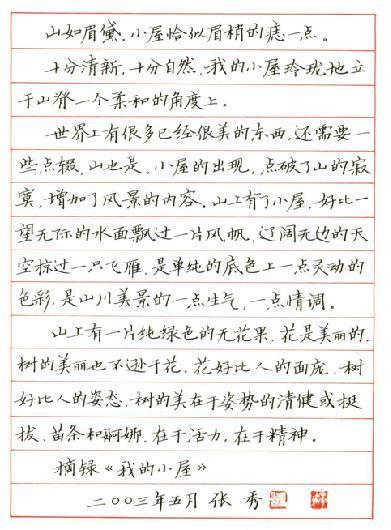 山如眉黛，小屋恰似眉梢的痣一点。
十分清新，十分自然，我的小屋玲珑地立
于山脊一个柔和的角度上。
世界上有很多已经很美的东西，还需要一
些点缀，山也是。小屋的出现，点破了山的寂
寞，增加了风景的内容。山上有了小屋，好比一
望无际的水面飘过一片风帆，辽阔无边的天
空掠过一只飞雁，是单纯的底色上一点灵动的
色彩，是山川美景的一点生气，一点情调。
山上有一片纯绿色的无花果，花是美丽的，
树的美丽也不逊于花，花好比人的面庞，树
好比人的姿态，树的美在于姿势的清健或挺
拔、苗条和婀娜，在于活力，在于精神。
摘录《我的小屋》
二〇〇三年五月 张秀